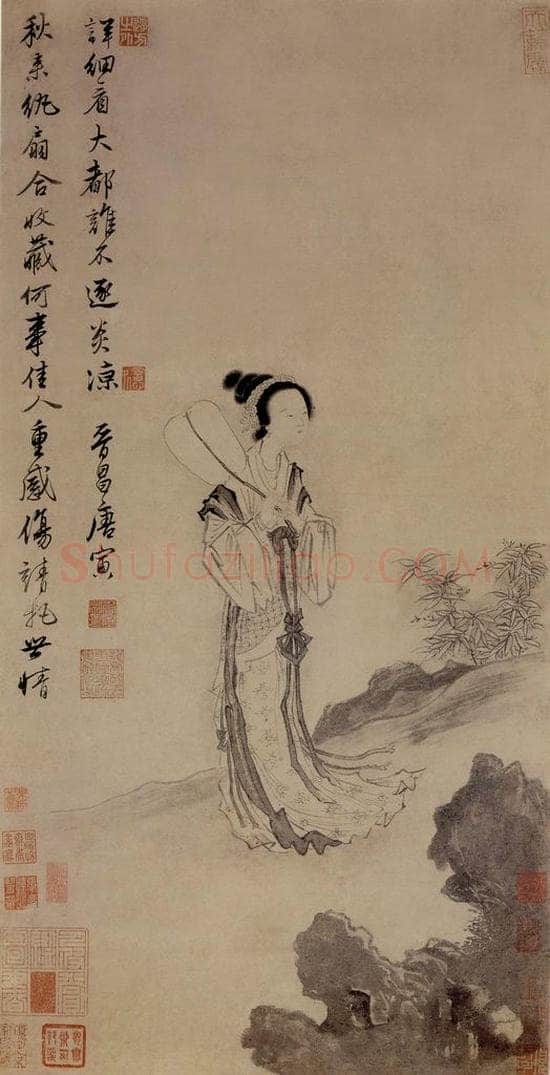 秋來紈扇合收藏何事佳人重感傷請托世情
詳細看大都誰不逐炎凉 晉昌唐寅
Shufaziliao.COM